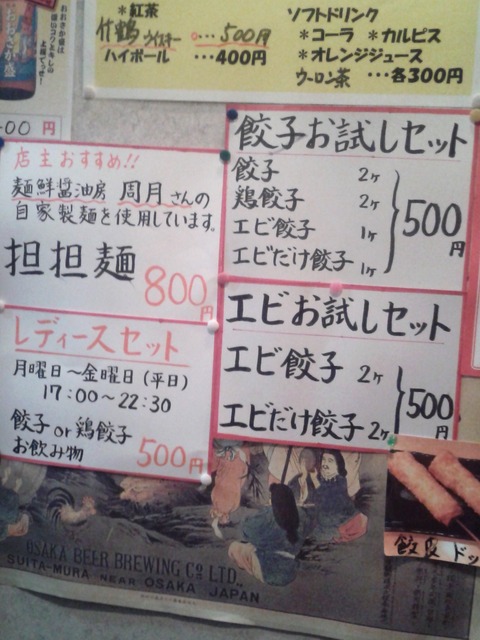 おおさか盛は
濃いコクとキレの
よお酒でっせ!
おおさか盛
00円
*紅茶
竹鶴ウイスキー …500円
ハイボール …400円
ソフトドリンク
*コーラ *カルピス
*オレンジジュース
ウーロン茶 …各300円
店主おすすめ!!
麺鮮醤油房 周月さんの
自家製麺を使用しています。
担担麺
800円
レディースセット
月曜日〜金曜日(平日)
17:00〜22:30
餃子or鶏餃子
お飲み物
500円
餃子お試しセット
餃子 2ヶ
鶏餃子 2ヶ
エビ餃子 1ヶ
エビだけ餃子 1ヶ
500円
エビお試しセット
エビ餃子 2ヶ
エビだけ餃子 2ヶ
500円
ドッ
OSAKA BEER BREWING CO LTD.,
SUITA-MURA NEAR OSAKA JAPAN